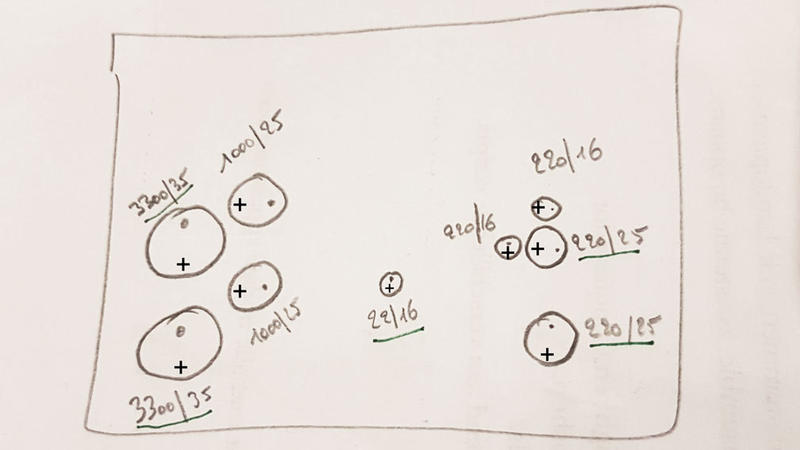 1000/25
220/16
3300/35
220/16
220/25
1000/25
22/16
220/25
3300/35